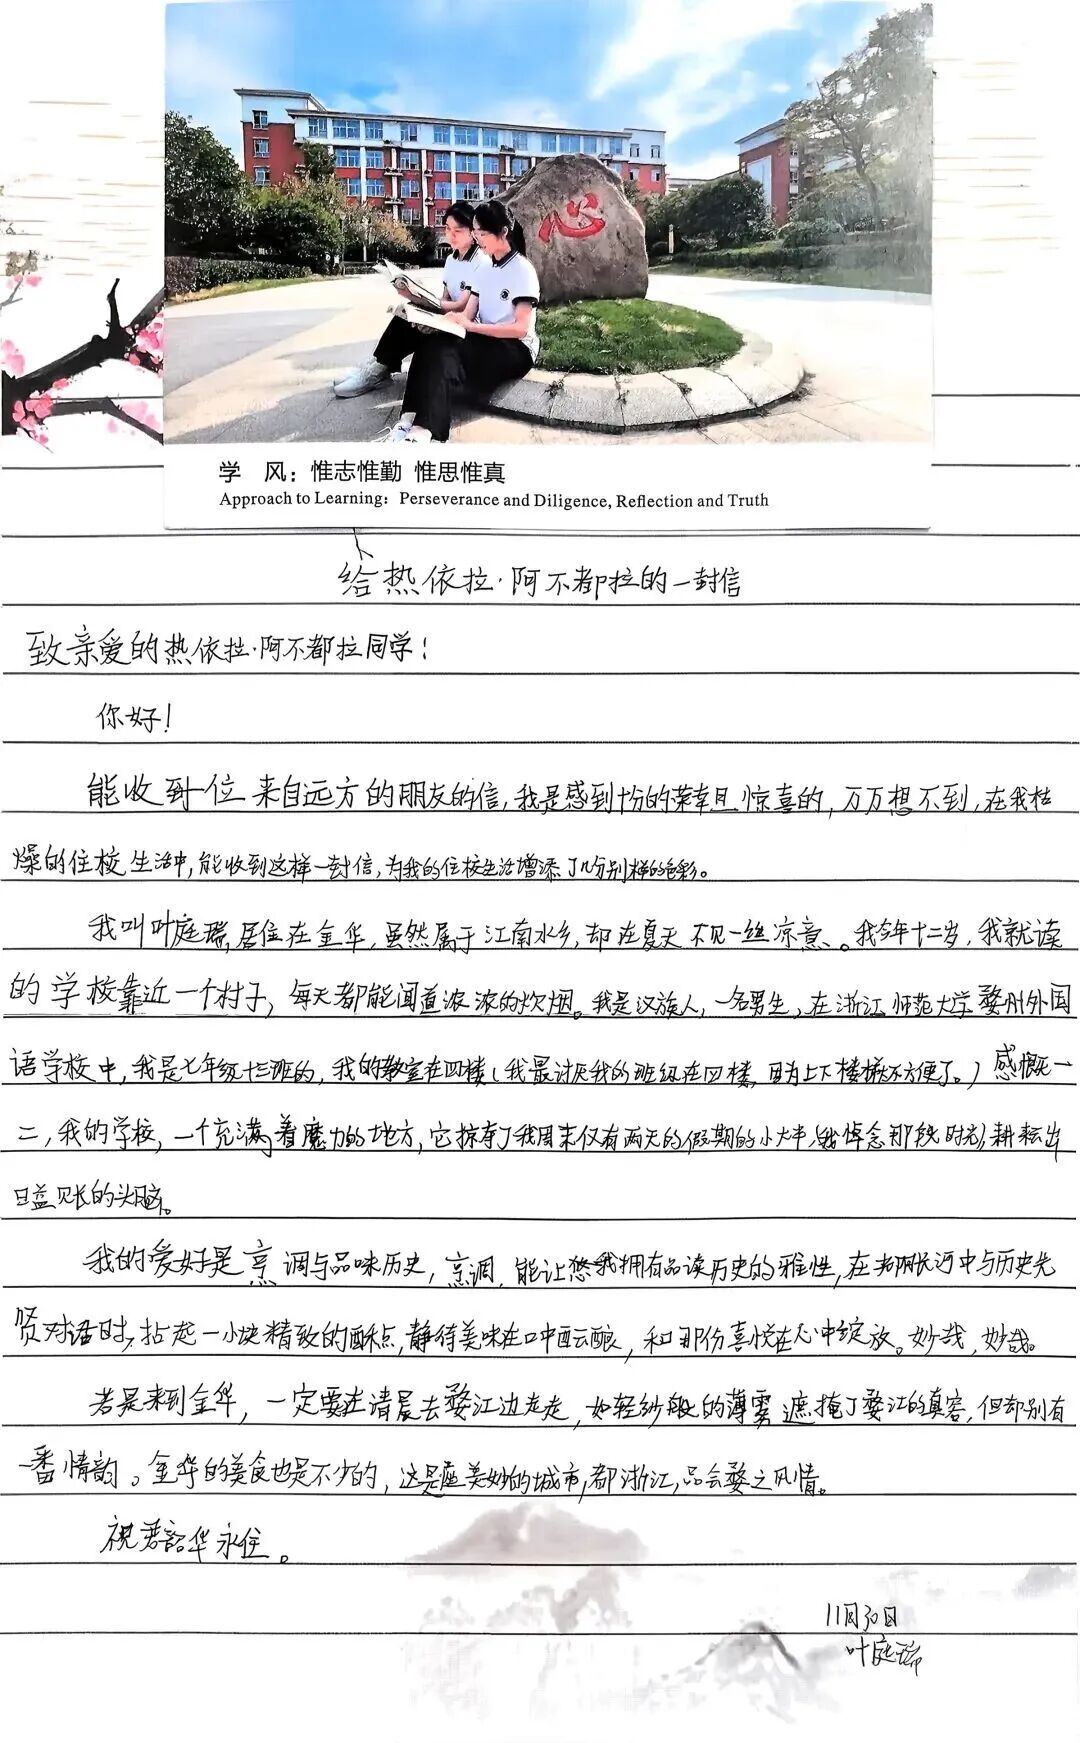 心
学 风：惟志惟勤 惟思惟真
Approach to Learning: Perseverance and Diligence, Reflection and Truth
给热依拉·阿不都拉的一封信
致亲爱的热依拉·阿不都拉同学！
你好！
能收到一位来自远方的朋友的信，我是感到十份的荣幸且惊喜的，万万想不到，在我枯
燥的住校生活中，能收到这样一封信，为我的住校生活增添了几分别样的色彩。
我叫叶庭瑞，居住在金华，虽然属于江南水乡，却在夏天不见一丝凉意。我今年十二岁，我就读
的学校靠近一个村子，每天都能闻道浓浓的炊烟。我是汉族人，一名男生，在浙江师范大学婺州外国
语学校中，我是七年级十三班的，我的教室在四楼（我最讨厌我的班级在四楼，因为上下楼梯太不方便了。）感慨一
二，我的学校，一个充满着魔力的地方，它掠夺了我周末仅有两天的假期的小大半（我悼念那段时光），耕耘出
日益见长的头脑。
我的爱好是烹调与品味历史，烹调，能让悠我拥有品读历史的雅性，在长河中与历史先
贤对话时，拈起一小块精致的酥点，静待美味在口中酝酿，和那份喜悦在心中绽放。妙哉，妙哉。
若是来到金华，一定要在清晨去婺江边走走，如轻纱般的薄雾遮掩了婺江的真容，但却别有
一番情韵。金华的美食也是不少的，这是座美妙的城市，都浙江，品会婺之风情。
祝君韶华永住。
11月30日
叶庭瑞